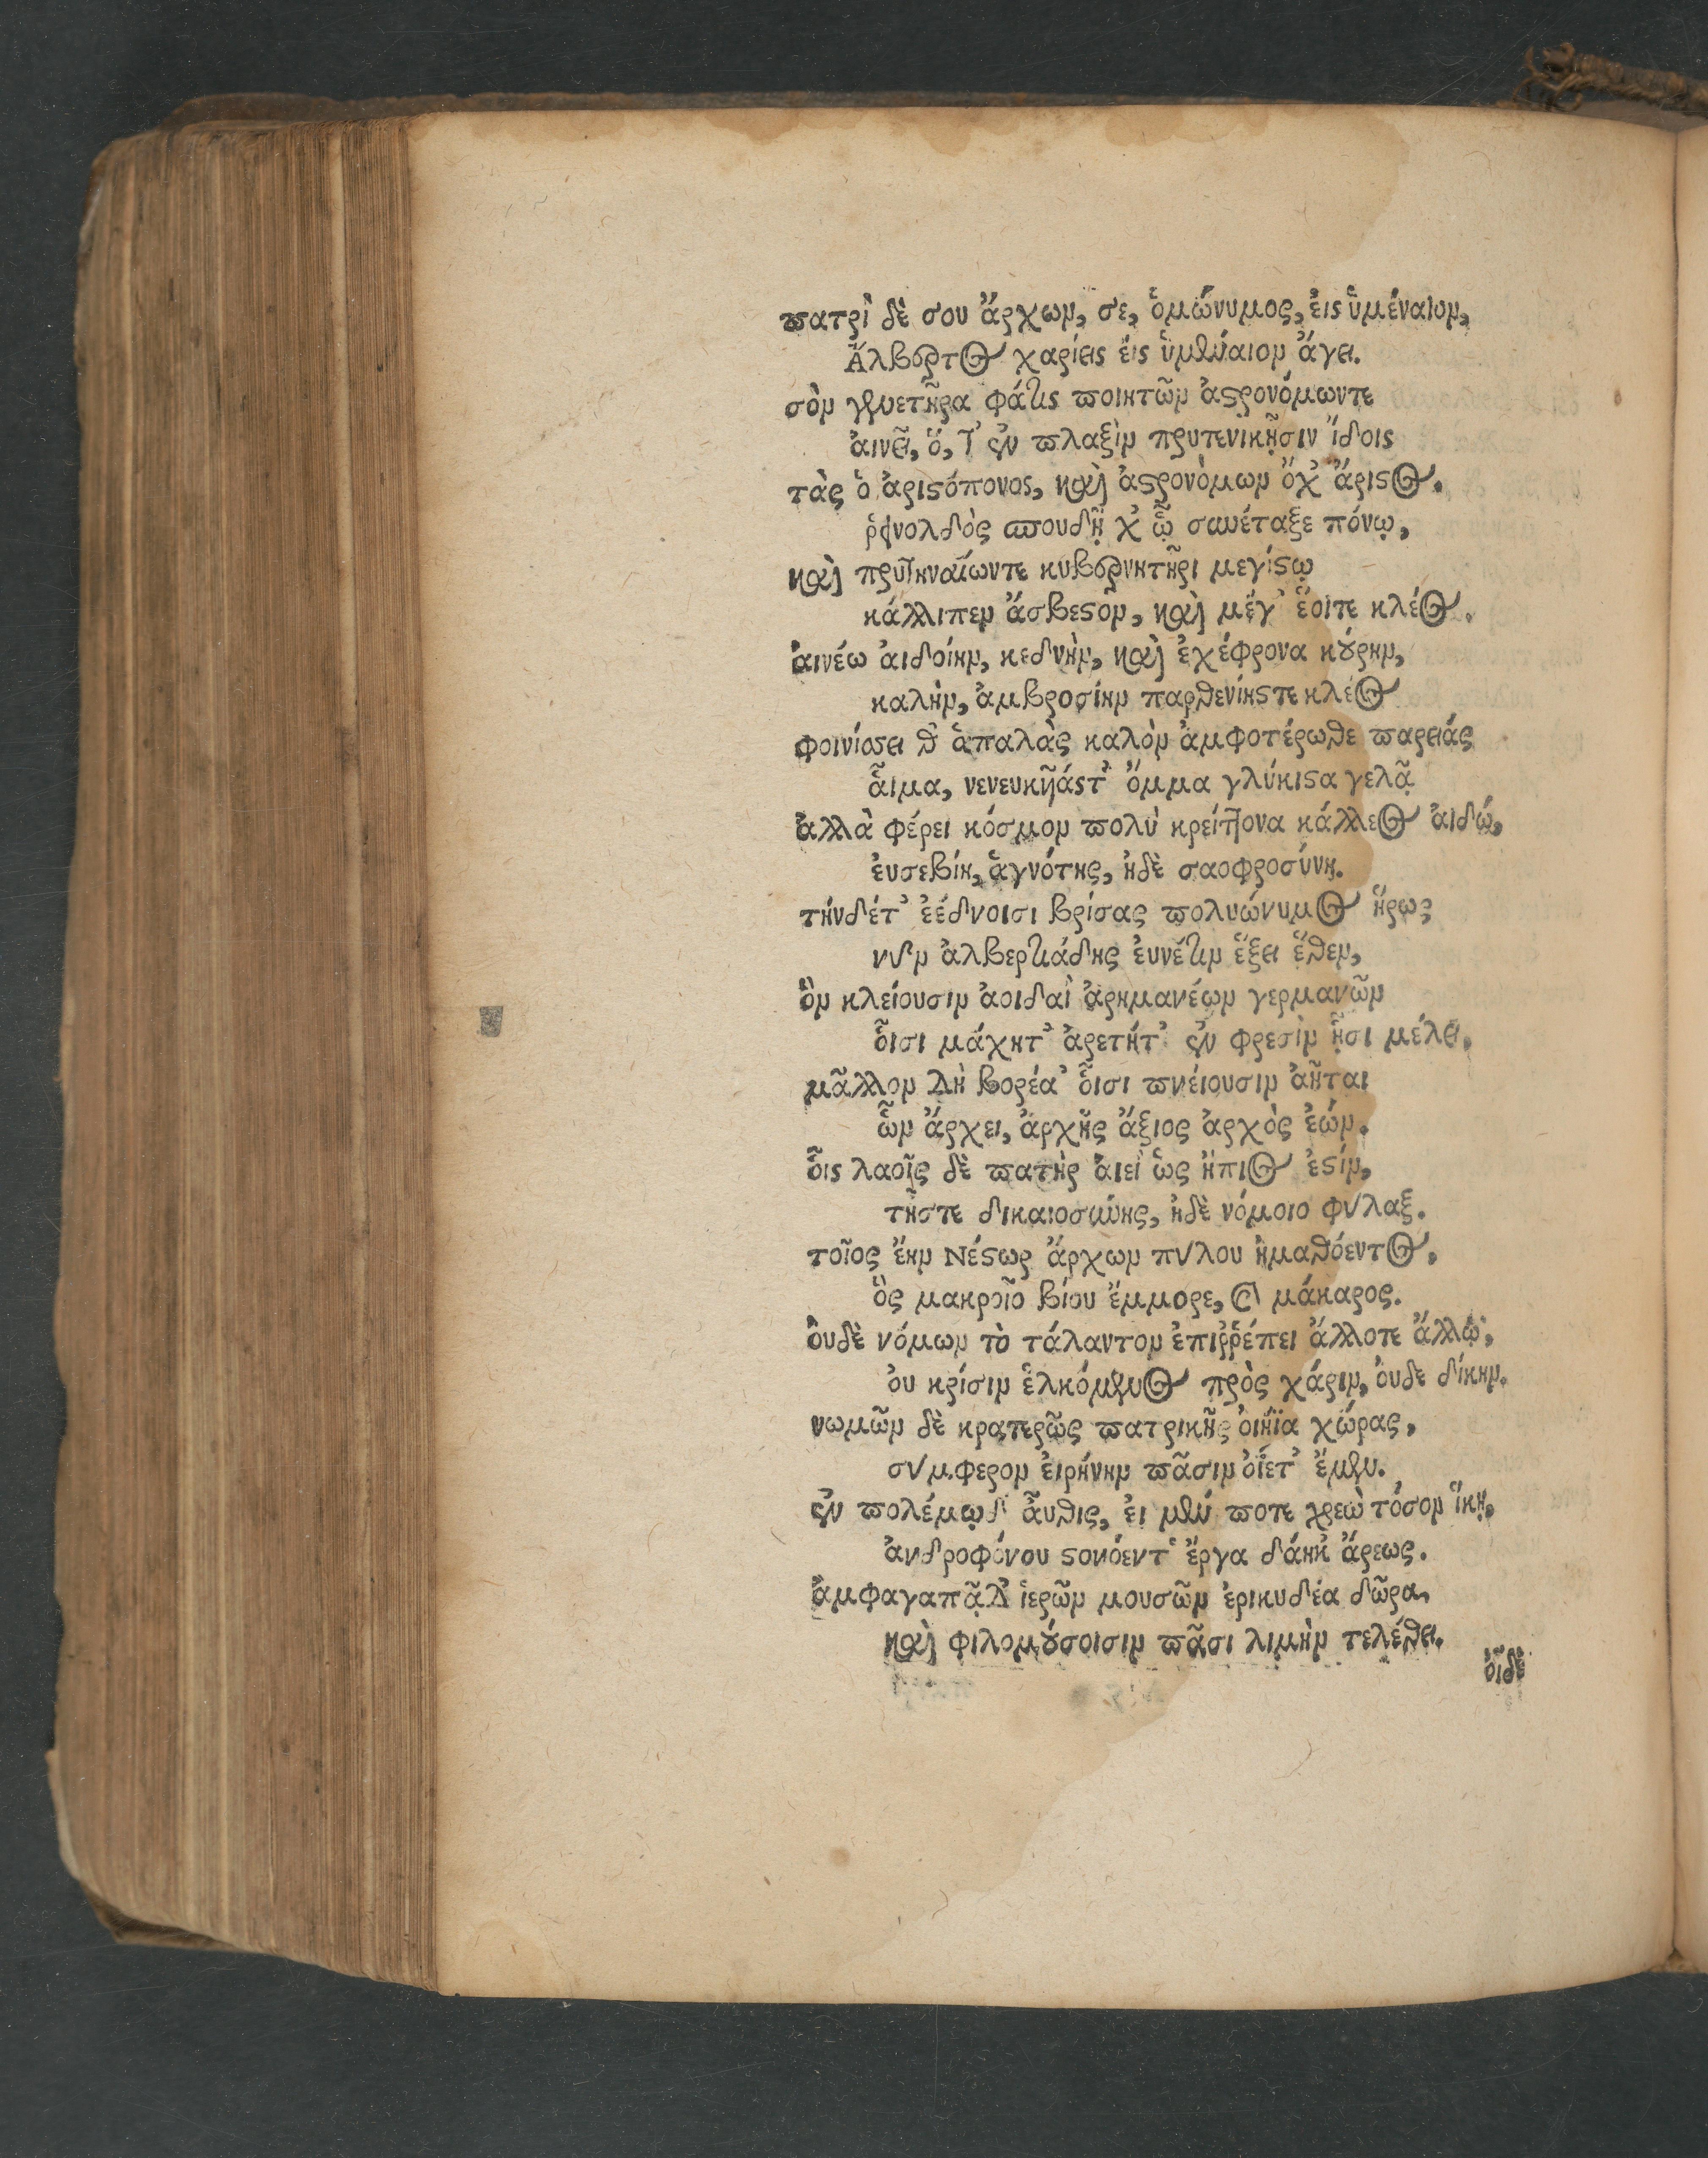 πατρὶ δὲ σου ἄρχων, σε, ὁμώνυμος, ἐις ὑμέναιον,
Ἄλβερτος χαρίεις ἐις ὑμέναιον ἄγει.
σὸν γενετῆρα φάτις ποιητῶν ἀστρονόμωντε
ἀινεῖ, ὅ, τ' ἐν πλαξὶν πρυτενικῇσιν ἴδοις
τὰς ὁ ἀριστόπονος, καὶ ἀστρονόμων ὄχ' ἄριστος.
ῥεινολδὸς σπουδῇ χ' ᾧ συνέταξε πόνῳ,
καὶ πρυττηναίωντε κυβερνητῆρι μεγίστῳ
κάλλιπεν ἄσβεστον, καὶ μέγ' ἕοιτε κλέος.
ἀινέω ἀιδοίην, κεδνὴν, καὶ ἐχέφρονα κούρην,
καλὴν, ἀμβροσίην παρθενίηστε κλέος
φοινίσσει θ' ἁπαλὰς καλὸν ἀμφοτέρωθε παρειάς
αἷμα, νενευκῆάστ' ὄμμα γλύκιστα γελᾷ
ἀλλὰ φέρει κόσμον πολὺ κρείττονα κάλλεος ἀιδώ,
ἐυσεβίη, ἁγνότης, ἠδὲ σαοφροσύνη.
τήνδέτ' ἐέδνοισι βρίσας πολυώνυμος ἥρως
νῦν ἀλβερτιάδης ἐυνέτιν ἕξει ἕθεν,
ὃν κλείουσιν ἀοιδαὶ ἀρημανέων γερμανῶν
οἷσι μάχητ' ἀρετήτ' ἐν φρεσὶν ᾗσι μέλει.
μᾶλλον δὴ βορέα' οἷσι πνείουσιν ἀῆται
ὧν ἄρχει, ἀρχῆς ἄξιος ἀρχὸς ἐών.
οἷς λαοῖς δὲ πατὴρ ἀιεὶ ὣς ἤπιος ἐστίν,
τῆστε δικαιοσύνης, ἠδὲ νόμοιο φύλαξ.
τοῖος ἔην Νέστωρ ἄρχων πύλου ἠμαθόεντος,
ὃς μακροῖο βίου ἔμμορε, καὶ μάκαρος.
ὀυδὲ νόμων τὸ τάλαντον ἐπιῤῥέπει ἄλλοτε ἄλλῳ,
ὀυ κρίσιν ἑλκόμενος πρὸς χάριν, ὀυδε δίκην.
νωμῶν δὲ κρατερῶς πατρικῆς ὀιήϊα χώρας,
σύμφερον ἐιρήνην πᾶσιν ὀίετ' ἔμεν.
ἐν πολέμῳδ' ἆυθις, ἐι μέν ποτε χρεὼ τόσον ἵκῃ,
ἀνδροφόνου στονόεντ' ἔργα δάηκ' ἄρεως.
ἀμφαγαπᾷδ' ἱερῶν μουσῶν ἐρικυδέα δῶρα,
καὶ φιλομούσοισιν πᾶσι λιμὴν τελέθει.
ὁῖδὲ